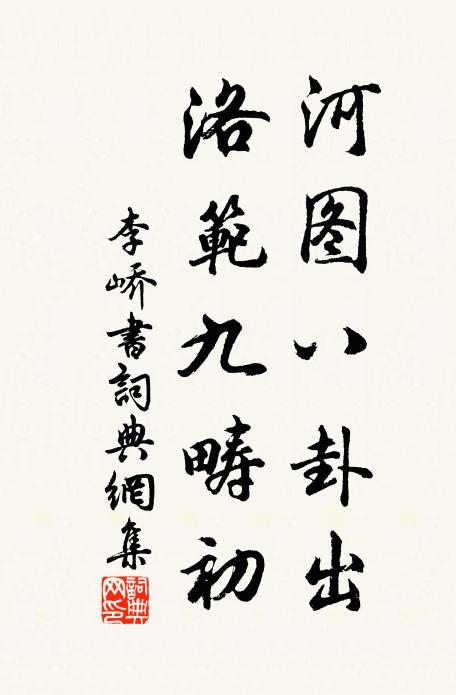 河图八卦出
洛範九疇初
李嶠書詞典網集
詞典网印